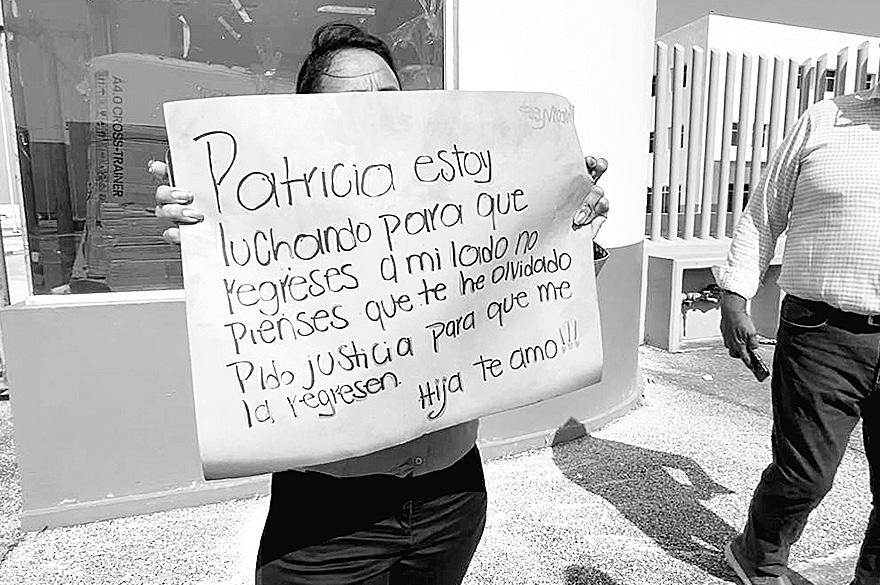 Patricia estoy
luchando para que
regreses a mi lado no
pienses que te he olvidado
Pido justicia para que me
la regresen.
Hija te amo!!!
A4.0 CROSS-TRAINER